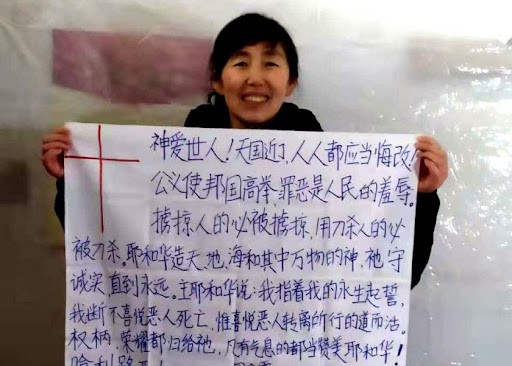 神爱世人!天国近了,人人都应当悔改!
公义使邦国高举,罪恶是人民的羞辱。
掳掠人的必被掳掠,用刀杀人的必
被刀杀。耶和华造天、地、海和其中万物的神,祂守
诚实,直到永远。主耶和华说:我指着我的永生起誓,
我断不喜悦恶人死亡,惟喜悦恶人转离所行的道而活。
权柄,荣耀都归给祂,凡有气息的都当赞美耶和华!
哈利路亚!